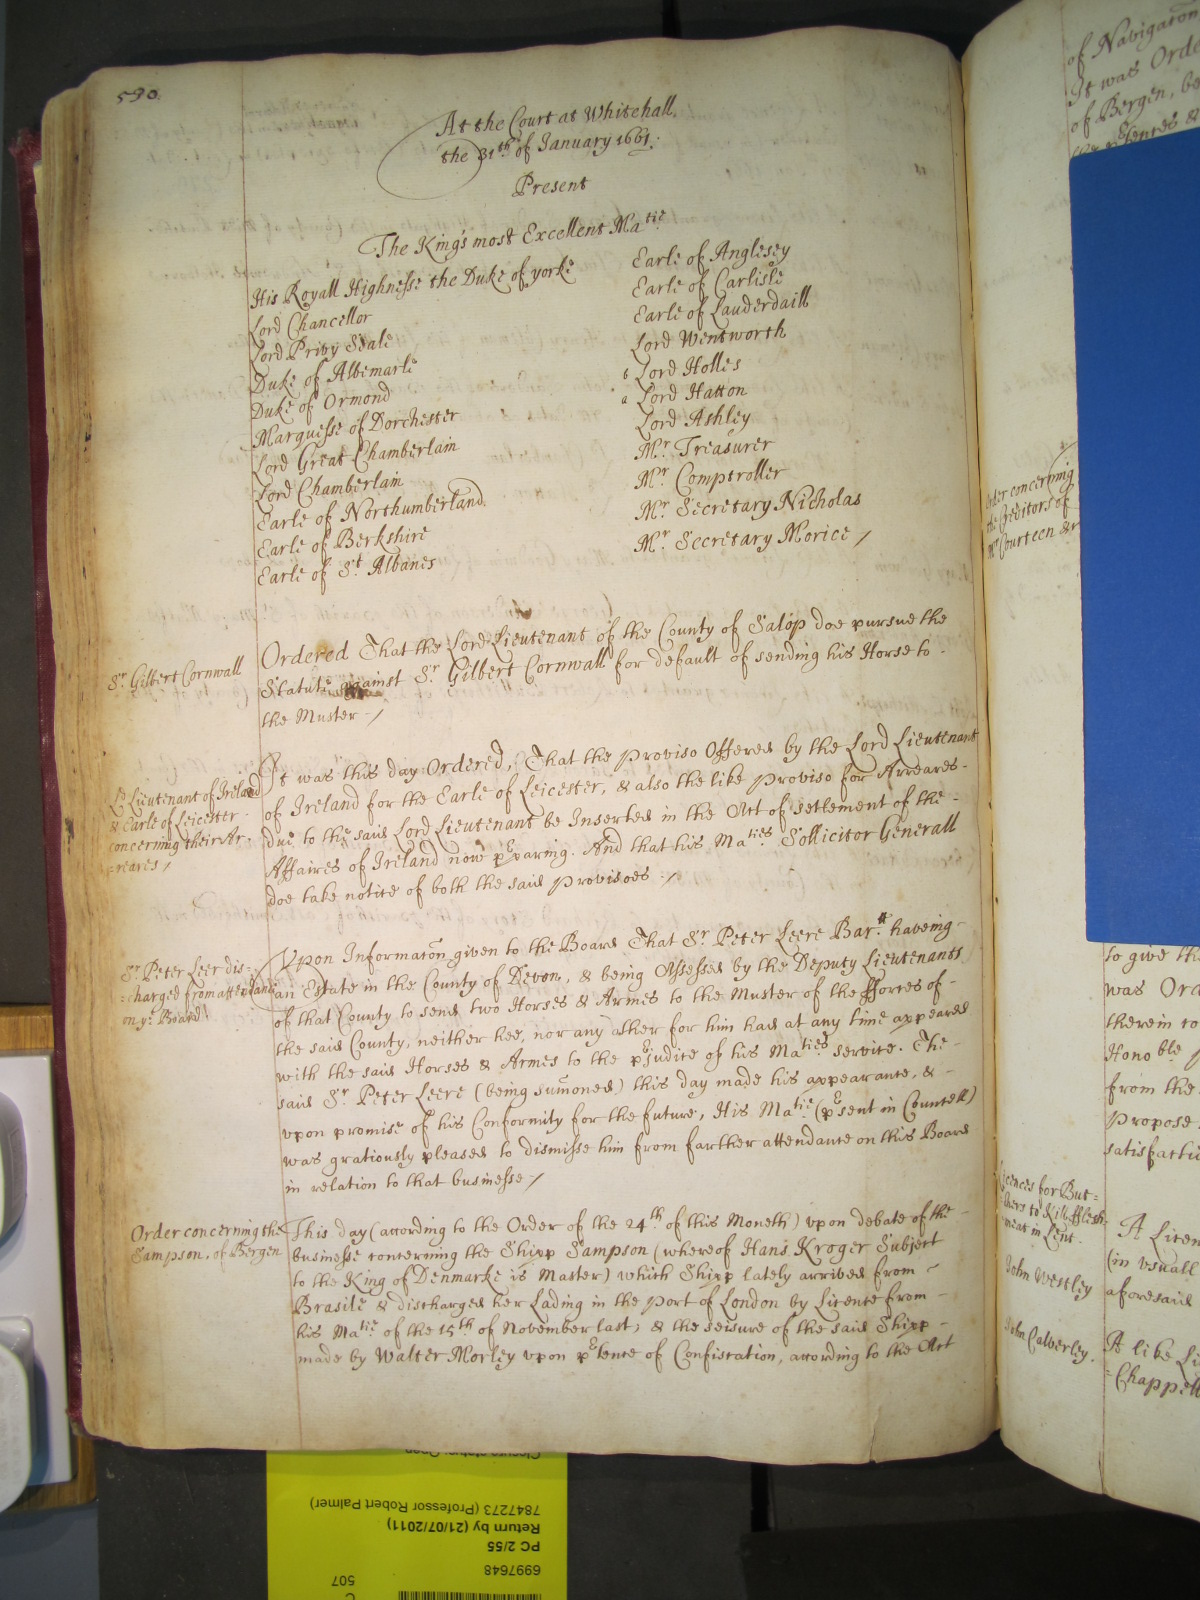 590.
At the Court at Whitehall,
the 31th of January 1661.
Present
The King's most Excellent Matie
His Royall Highnesse the Duke of yorke
Lord Chancellor
Lord Privy Seale
Duke of Albemarle
Duke of Ormond
Marquesse of Dorchester
Lord Great Chamberlain
Lord Chamberlain
Earle of Northumberland
Earle of Berkshire
Earle of St Albanes
Earle of Anglesey
Earle of Carlisle
Earle of Lauderdaill
Lord Wentworth
Lord Holles
Lord Hatton
Lord Ashley
Mr. Treasurer
Mr. Comptroller
Mr. Secretary Nicholas
Mr. Secretary Morice /
Sr. Gilbert Cornwall
Ordered That the Lord Lieutenant of the County of Salop doe pursue the
Statute against Sr. Gilbert Cornwall for default of sending his Horse to -
the Muster - /
Ld Lieutenant of Ireland
& Earle of Leicester
concerning their Ar-
=reares /
It was this day Ordered, That the Proviso Offered by the Lord Lieutenant
of Ireland for the Earle of Leicester, & also the like Proviso for Arreares-
due to the said Lord Lieutenant be Inserted in the Act of settlement of the -
Affaires of Ireland now pparing. And that his Maties Sollicitor Generall
doe take notice of both the said Provisoes - /
Sr. Peter Leer dis-
=charged from attendance
on ye Board
Upon Informaton given to the Board That Sr. Peter Leere Bart. haveing -
an Estate in the County of Devon, & being Assessed by the Deputy Lieutenants
of that County to send two Horses & Armes to the Muster of the fforces of -
the said County, neither hee, nor any other for him had at any time appeared
with the said Horses & Armes to the pjudice of his Maties service. The -
said Sr. Peter Leere (being sumoned) this day made his appearance, & -
upon promise of his Conformity for the future, His Matie (psent in Councell)
was gratiously pleased to dismisse him from farther attendance on this Board
in relation to that businesse /
Order concerning the
Sampson, of Bergen
This day (according to the Order of the 24th of this Moneth) upon debate of the -
businesse concerning the Shipp Sampson (whereof Hans Kroger Subject
to the King of Denmarke is Master) which Shipp lately arrived from -
Brasile & discharged her Lading in the Port of London by Licence from -
his Matie of the 15th of November last, & the seisure of the said Shipp -
made by Walter Morley upon ptence of Confiscation, according to the Act
of Navigaton
It was Orde
of Bergen, be
Order concerning
the Creditors of
Mr Courteen &c
to give the
was Ord
therein to
Honoble
from the
propose
satisfacti
Licences for But=
=chers to Kill fflesh
meat in Lent.
A Licen
(in usuall
John Westley
aforesaid
John Calverley.
A like Li
=Chappell
Closure status: Open
7847273 (Professor Robert Palmer)
Return by (21/07/2011)
PC 2/55
6997648
507